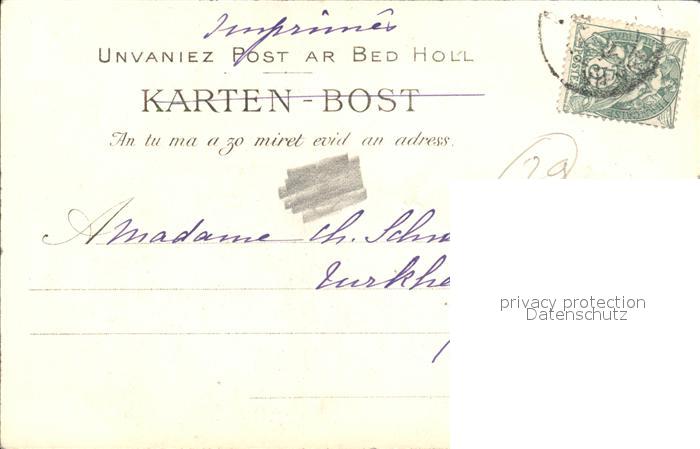 Imprimés
UNVANIEZ POST AR BED HOLL
KARTEN-BOST
An tu ma a zo miret evid an adress.
A Madame Ch. Schu
Turkhe
privacy protection
Datenschutz